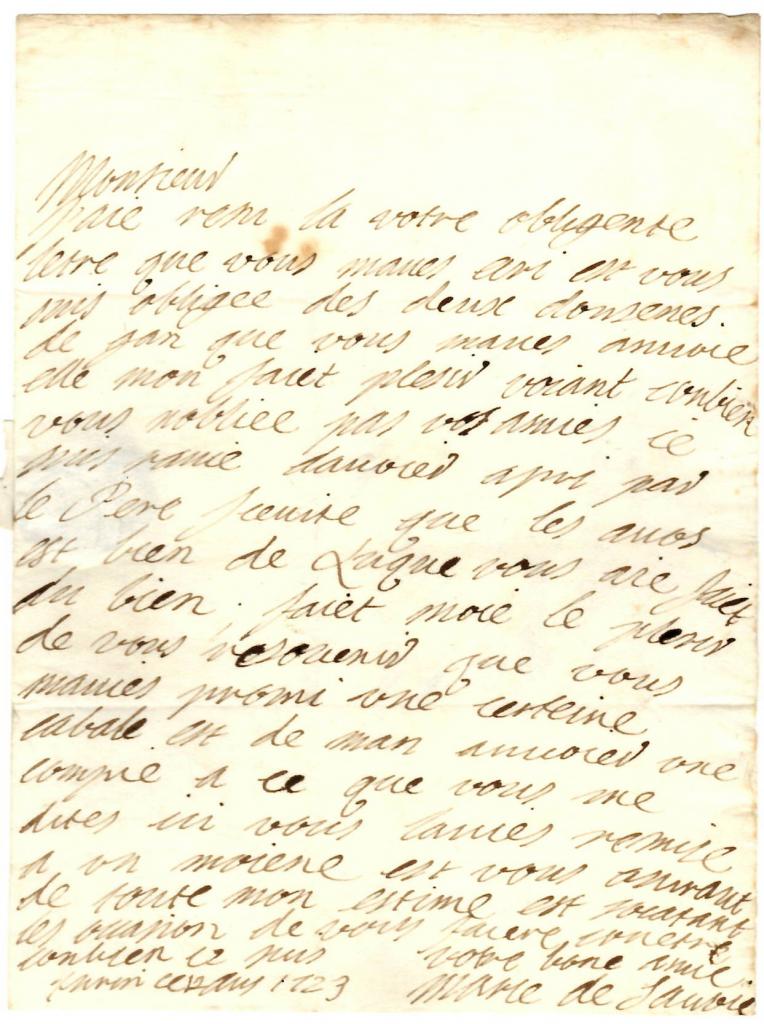 Monsieur
jaie resu la votre obligente
letre que vous maves ecri est vous
suis obligee des deux donsenes
de gan que vous maves anuoie
elle mon faiet plesir voiant conbien
vous nobliee pas vos amies ie
suis ravie dauoier apri par
le Pere Jeuite que les auos
est bien de Luque vous aie faiet
du bien. faiet moie le plesir
de vous resouenir que vous
mauies promi vne certeine
cabale est de man anuoier vne
compie a ce que vous me
dites ici vous lauies remise
a vn moiene est vous asurant
de toute mon estime est
les ocasion de vous faiere conetre
conbien ie suis votre bone amie
Turin ce 1723 Marie de Sauoie